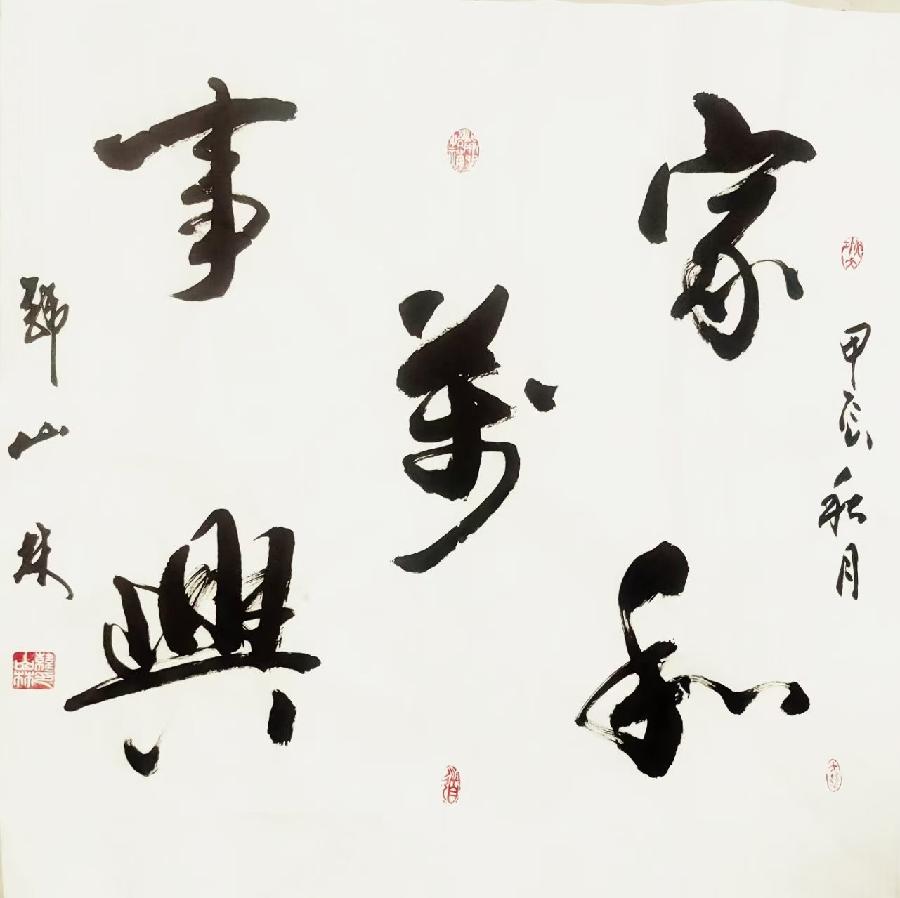 家和
萬
事興
甲辰秋月
山林